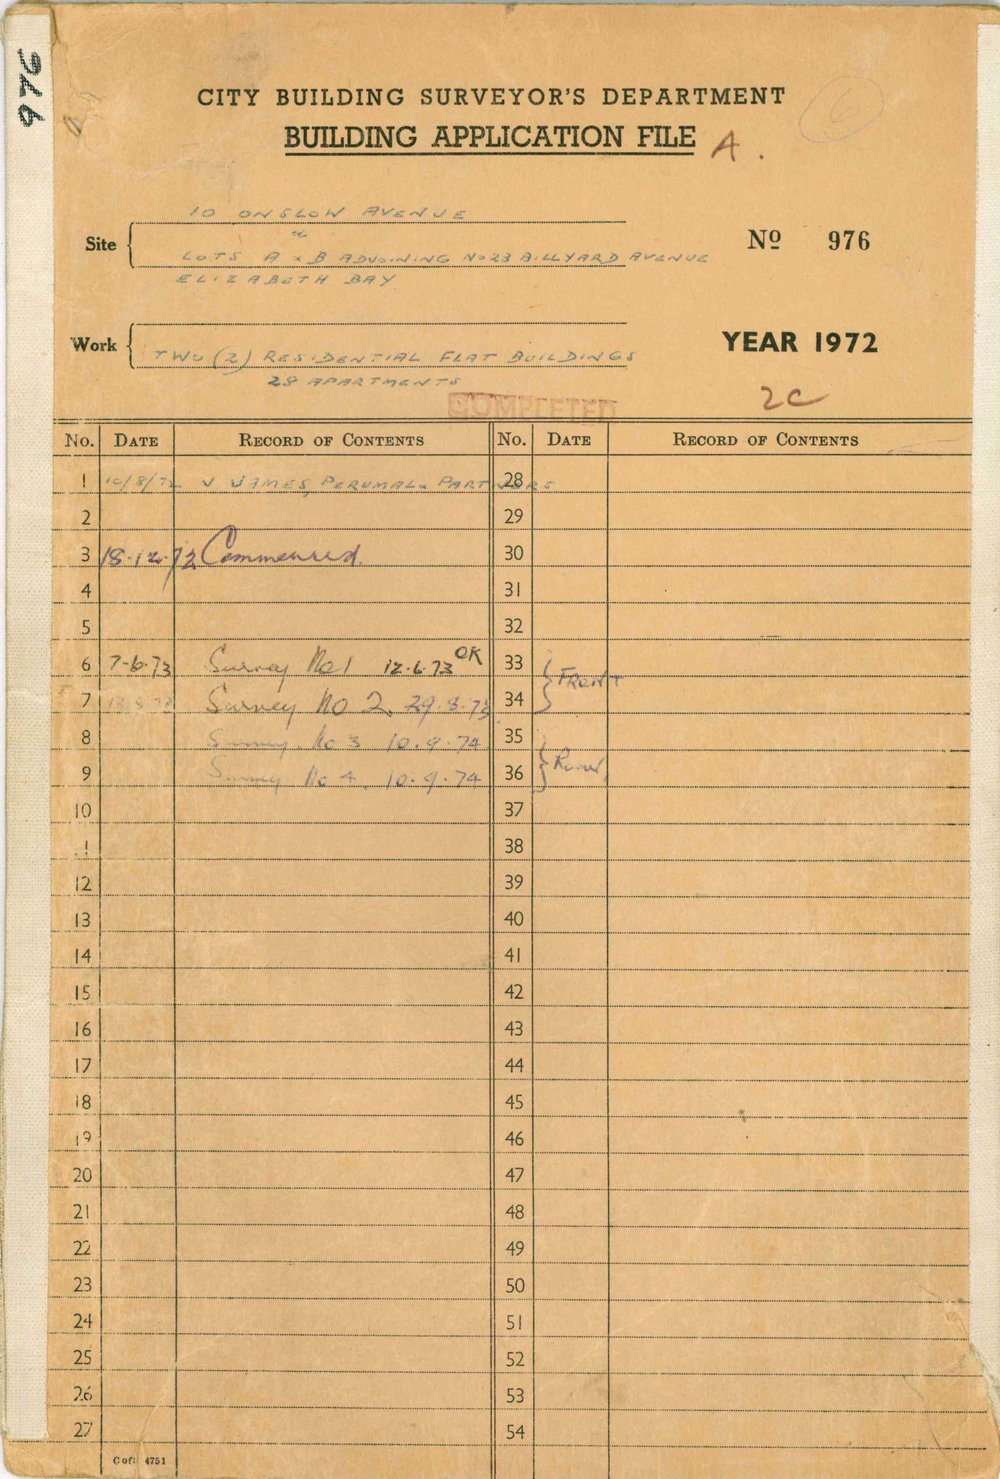 976
CITY BUILDING SURVEYOR'S DEPARTMENT
BUILDING APPLICATION FILE A.
6
Site
10 ONSLOW AVENUE
&
LOTS A & B ADJOINING No 23 BILLYARD AVENUE
ELIZABETH BAY
Nº 976
Work
TWO (2) RESIDENTIAL FLAT BUILDINGS
28 APARTMENTS
YEAR 1972
2C
COMPLETED
No. DATE RECORD OF CONTENTS No. DATE RECORD OF CONTENTS
1 10/8/72 V JAMES, PERUMAL & PARTNERS 28
2 29
3 18-12-72 Commenced. 30
4 31
5 32
6 7-6-73 Survey No 1 12.6.73 OK 33
7 Survey No 2. 29.8.73 34 FRONT
8 Survey. No 3 10.9.74. 35
9 Survey No 4. 10.9.74 36
10 37
11 38
12 39
13 40
14 41
15 42
16 43
17 44
18 45
19 46
20 47
21 48
22 49
23 50
24 51
25 52
26 53
27 54
4751